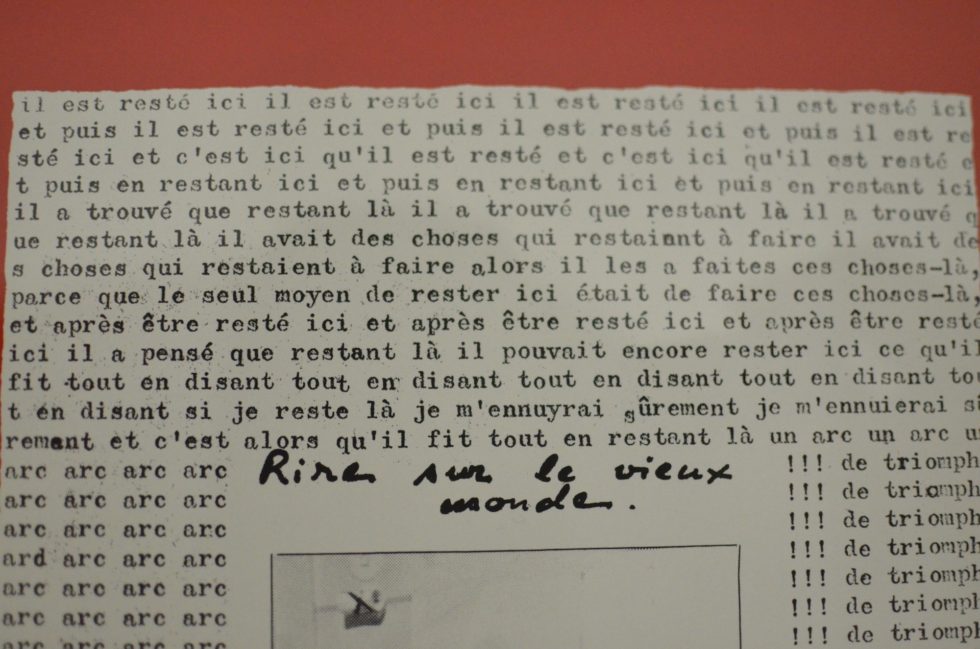 il est resté ici il est resté ici il est resté ici il est resté ici
et puis il est resté ici et puis il est resté ici et puis il est re
sté ici et c'est ici qu'il est resté et c'est ici qu'il est resté e
t puis en restant ici et puis en restant ici et puis en restant ici
il a trouvé que restant là il a trouvé que restant là il a trouvé q
ue restant là il avait des choses qui restaient à faire il avait de
s choses qui restaient à faire alors il les a faites ces choses-là,
parce que le seul moyen de rester ici était de faire ces choses-là,
et après être resté ici et après être resté ici et après être resté
ici il a pensé que restant là il pouvait encore rester ici ce qu'il
fit tout en disant tout en disant tout en disant tout en disant tou
t en disant si je reste là je m'ennuyrai sûrement je m'ennuierai sû
rement et c'est alors qu'il fit tout en restant là un arc un arc un
arc arc arc arc Rire sur le vieux !!! de triomph
arc arc arc arc monde. !!! de triomph
arc arc arc arc !!! de triomph
ard arc arc arc !!! de triomph
arc arc arc arc !!! de triomph
arc arc arc arc !!! de triomph
arc arc arc arc !!! de triomph